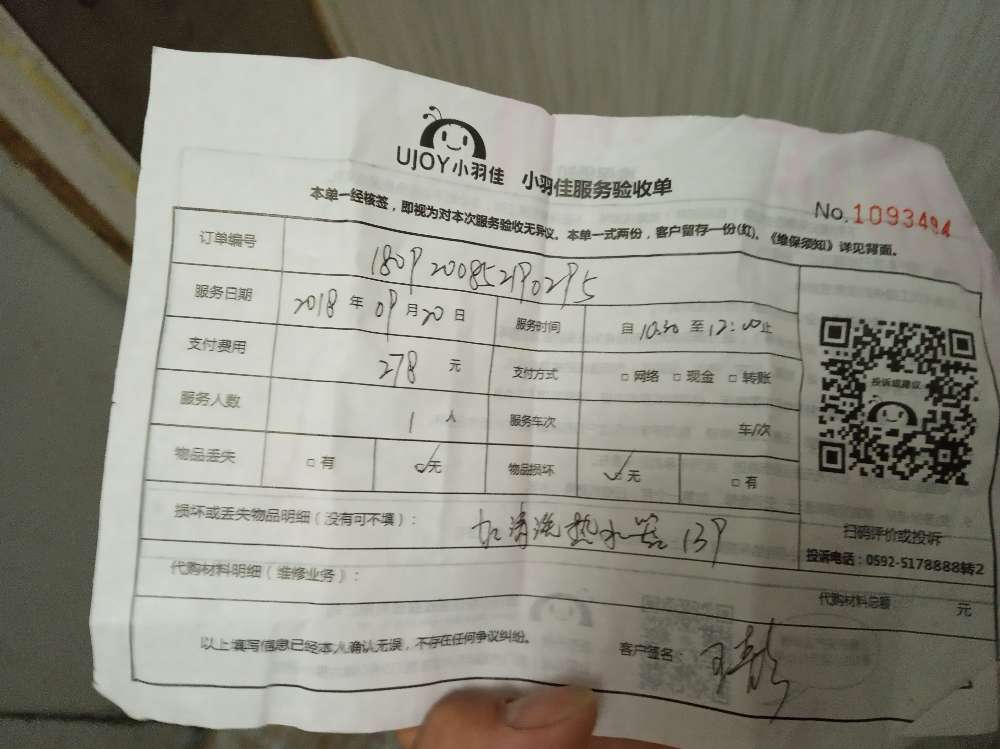 UJOY小羽佳 小羽佳服务验收单
No.1093494
本单一经核签，即视为对本次服务验收无异议。本单一式两份，客户留存一份(红)。《维保须知》详见背面。
订单编号 180920085290295
服务日期 2018 年 09 月 20 日 服务时间 自 10:30 至 12:00 止
支付费用 278 元 支付方式 □ 网络 □ 现金 □ 转账
服务人数 1 人 服务车次 车/次
物品丢失 □ 有 ☑ 无 物品损坏 ☑ 无 □ 有
投诉或建议
损坏或丢失物品明细（没有可不填）： 加清洗热水器 139
扫码评价或投诉
投诉电话：0592-5178888转2
代购材料明细（维修业务）：
代购材料总额 元
以上填写信息已经本人确认无误，不存在任何争议纠纷。
客户签名：